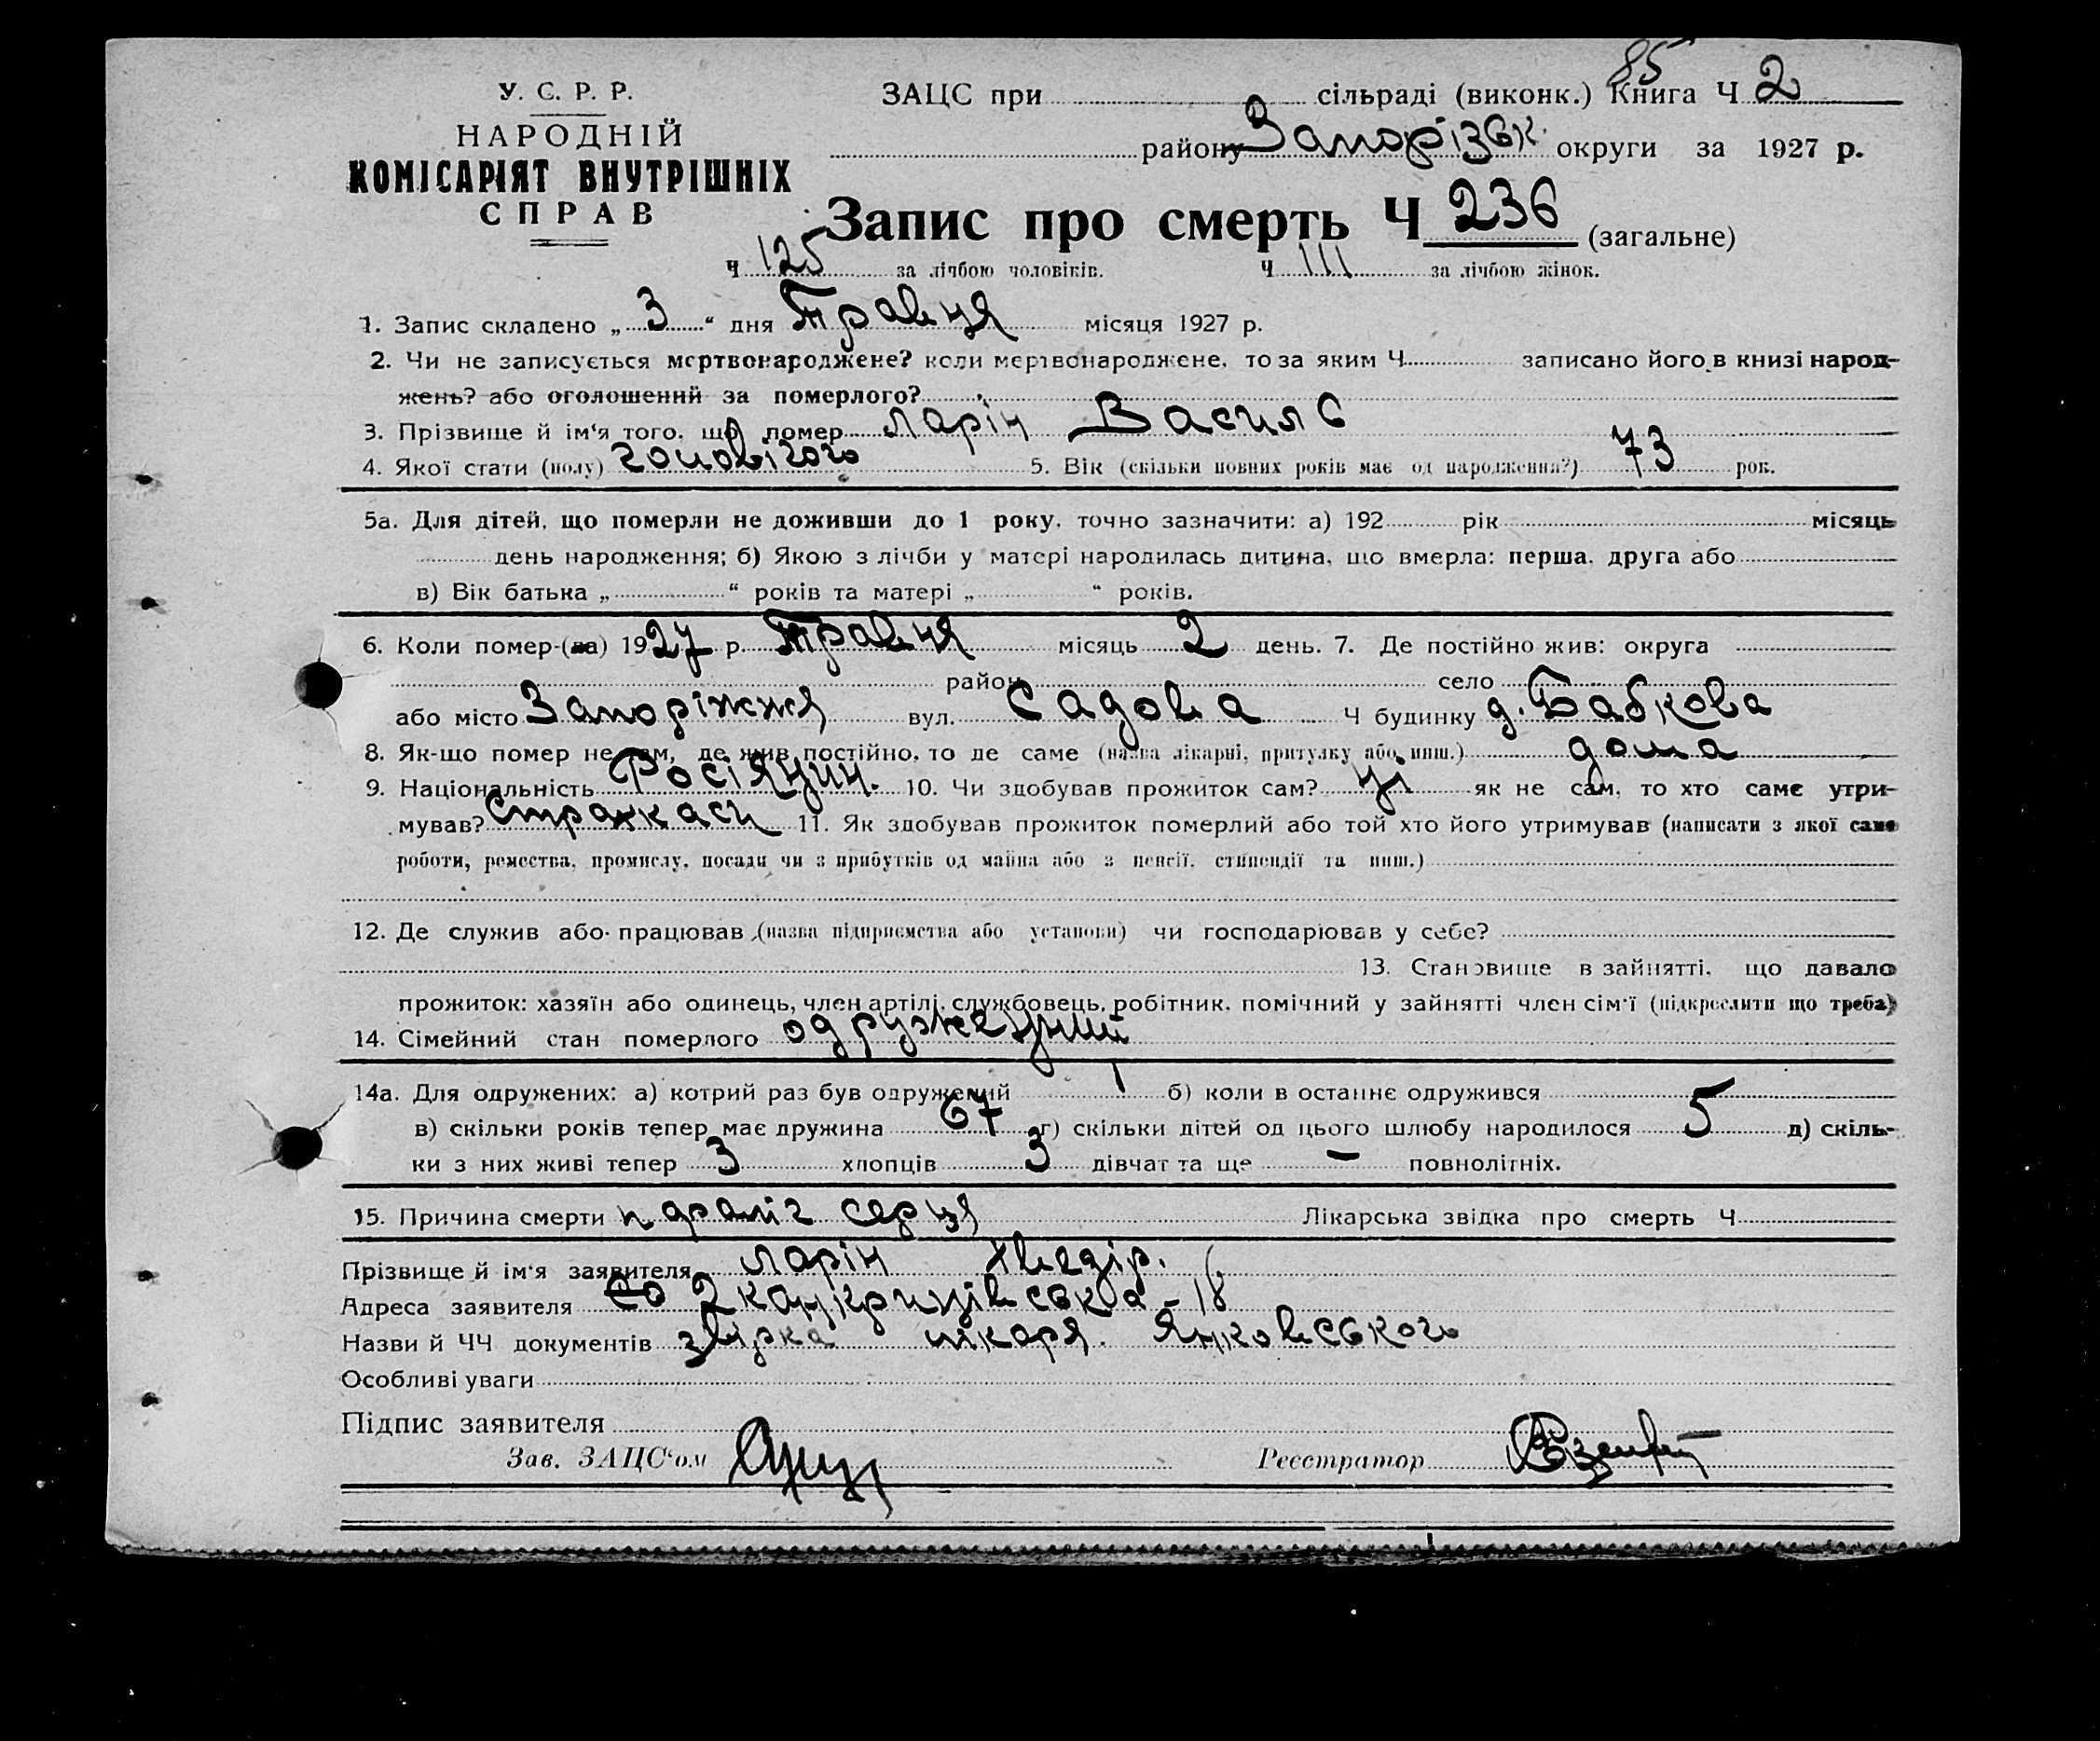 85
У. С. Р. Р.
НАРОДНІЙ
КОМІСАРІЯТ ВНУТРІШНІХ
СПРАВ
ЗАЦС при сільраді (виконк.) Книга Ч 2
району Запорізьк. округи за 1927 р.
Запис про смерть Ч 236 (загальне)
Ч 125 за лічбою чоловіків. Ч 111 за лічбою жінок.
1. Запис складено „ 3 “ дня Травня місяця 1927 р.
2. Чи не записується мертвонароджене? коли мертвонароджене, то за яким Ч записано його в книзі народ-
жень? або оголошений за померлого?
3. Прізвище й ім‘я того, що помер Ларін Василь
4. Якої стати (полу) чоловічого 5. Вік (скільки повних років має од народження?) 73 рок.
5а. Для дітей, що померли не доживши до 1 року, точно зазначити: а) 192 рік місяць
день народження; б) Якою з лічби у матері народилась дитина, що вмерла: перша, друга або
в) Вік батька „ “ років та матері „ “ років.
6. Коли помер-(ла) 1927 р. Травня місяць 2 день. 7. Де постійно жив: округа
район село
або місто Запоріжжя вул. Садова Ч будинку д. Бабкова
8. Як-що помер не там, де жив постійно, то де саме (назва лікарні, притулку або инш.) дома
9. Національність Росіянин. 10. Чи здобував прожиток сам? ні як не сам, то хто саме утри-
мував? 11. Як здобував прожиток померлий або той хто його утримував (написати з якої саме
роботи, ремества, промислу, посади чи з прибутків од майна або з пенсії, стипендії та инш.)
12. Де служив або працював (назва підприємства або установи) чи господарював у себе?
13. Становище в зайнятті, що давало
прожиток: хазяїн або одинець, член артілі, службовець, робітник, помічний у зайнятті член сім‘ї (підкреслити що треба)
14. Сімейний стан померлого одружений
14а. Для одружених: а) котрий раз був одружений 1 б) коли в останнє одружився
в) скільки років тепер має дружина 67 г) скільки дітей од цього шлюбу народилося 5 д) скіль-
ки з них живі тепер 3 хлопців 3 дівчат та ще — повнолітніх.
15. Причина смерти параліч серця Лікарська звідка про смерть Ч
Прізвище й ім‘я заявителя Ларін
Адреса заявителя 2 - 18
Назви й ЧЧ документів звідка лікаря. Янковського
Особливі уваги
Підпис заявителя
Зав. ЗАЦС‘ом Реєстратор